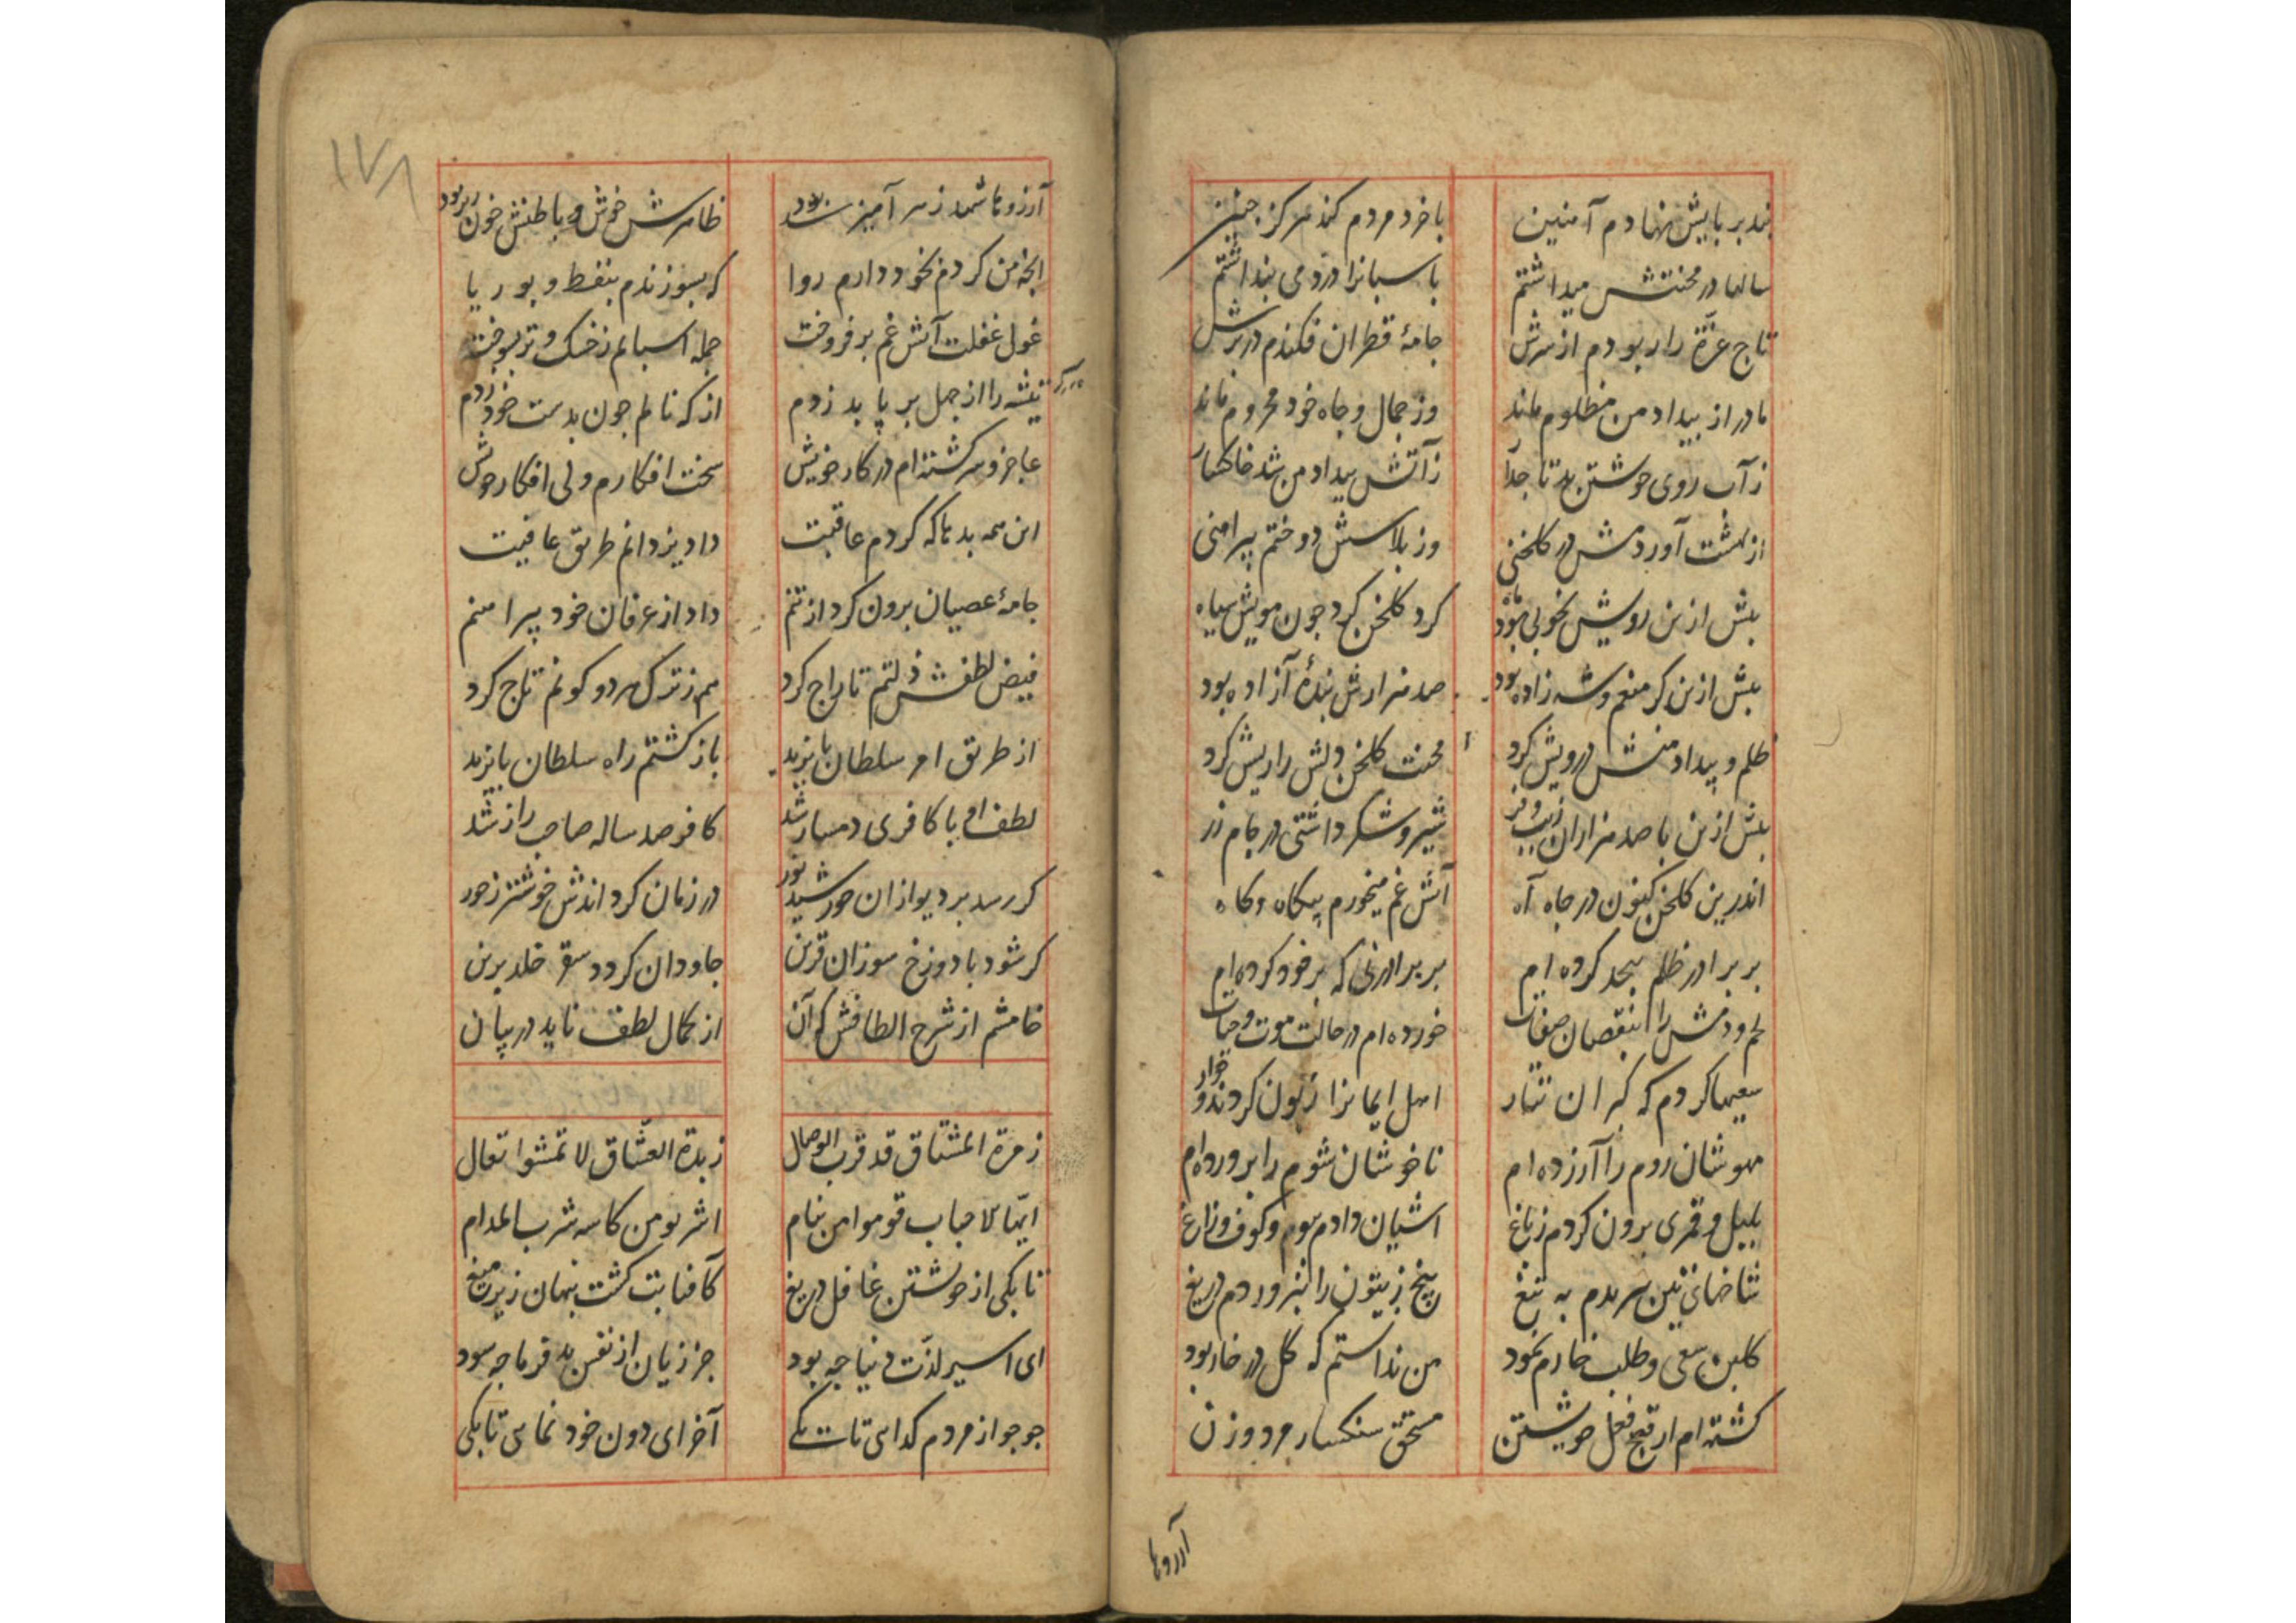 بند بر پایش نهادم آهنین
با خرد مردم کند هرگز چنین
سالها در محنتش میداشتم
پاسبانرا دزد می پنداشتم
تاج عزّة را ربودم از سرش
جامهٔ قطران فکندم در برش
مادر از بیداد من مظلوم ماند
وز جمال و جاه خود محروم ماند
زآب روی خویشتن بد تاجدار
زآتش بیداد من شد خاکسار
از بهشت آوردمش در کلخنی
وز پلاسش دوختم پیراهنی
پیش ازین رویش بخوبی بود ماه
کرد کلخن کرد چون مویش سیاه
پیش ازین کر منعم و شه زاده بود
صد هزارش بندهٔ آزاده بود
ظلم و بیداد منش درویش کرد
محنت کلخن دلش را ریش کرد
پیش ازین با صد هزاران زیب و فر
شیر و شکر داشتی در جام زر
اندرین کلخن کنون در چاه آه
آتش غم میخورم بیکاه و کاه
بر برادر ظلم بیحد کرده ام
بر برادر نی که بر خود کرده ام
لحم و دمش را بنقصان صفات
خورده ام در حالت موت و حیات
سعیها کردم که کبران تتار
اهل ایمانرا زبون کردند و خوار
مهوشان روم را آزرده ام
ناخوشان شوم را پرورده ام
بلبل و قمری برون کردم ز باغ
آشیان دادم ببوم و کوف و زاغ
شاخهای تین بریدم به تیغ
بیخ زیتون را نپروردم دریغ
کلبن سعی و طلب خارم نمود
من ندانستم که گل در خار بود
کشته ام از قبح فعل خویشتن
مستحق سنکسار مرد و زن
آرزوها
۱۷۸
آرزوها شهد زهر آمیز بود
ظاهرش خوش و باطنش خون ریز بود
آنچه من کردم بخود دارم روا
که بسوزندم بنفط و بوریا
غول غفلت آتش غم بر فروخت
جمله اسبابم ز خشک و تر بسوخت
تیشه را از جهل بر پا بد زدم
از که نالم چون بدست خود زدم
عاجز و سرکشته ام در کار خویش
سخت افکارم ولی افکار خویش
این همه بدها که کردم عاقبت
داد یزدانم طریق عافیت
جامهٔ عصیان برون کرد از تنم
داد از عرفان خود پیراهنم
فیض لطفش ذلتم تاراج کرد
هم ز ترک هر دو کونم تاج کرد
از طریق امر سلطان بایزید
باز کشتم راه سلطان بایزید
لطف او با کافری دمساز شد
کافر صد ساله صاحب راز شد
کر رسد بر دیو ازان خورشید نور
در زمان کرداندش خوشتر ز حور
کر شود با دوزخ سوزان قرین
جاودان کردد سقر خلد برین
خامشم از شرح الطافش که آن
از کمال لطف ناید در بیان
زمرة المشتاق قد قرب الوصال
زبدة العشّاق لا تمشوا تعال
ایها الاحباب قوموا من نیام
اشربو من کاسه شرب المدام
تا بکی از خویشتن غافل دریغ
کآفتابت کشت پنهان زیر میغ
ای اسیر لذّت دنیا چه بود
جز زیان از نفس بد فرما چه سود
جو جو از مردم کدایی تا بکی
آخر ای دون خود نمایی تا بکی